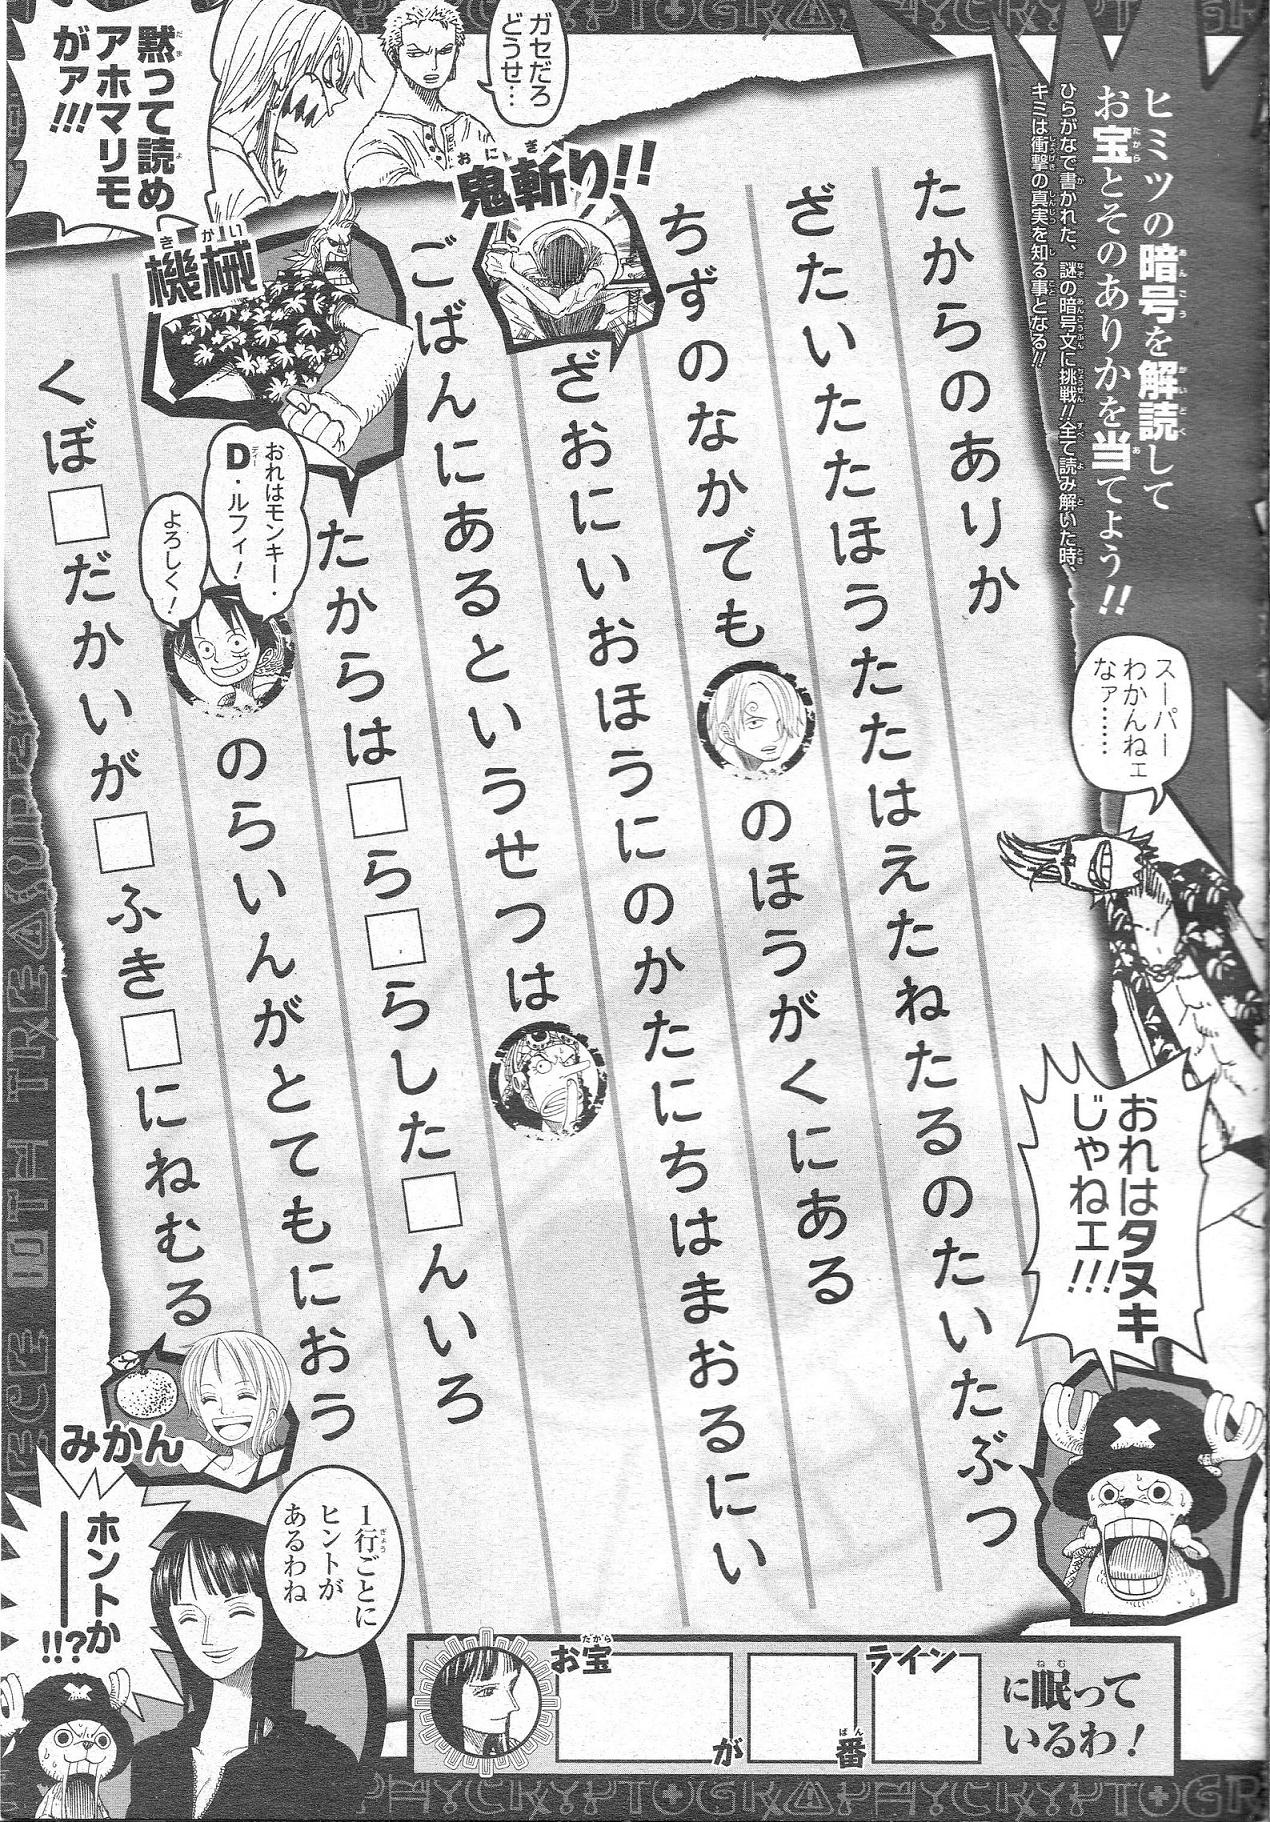 ヒミツの暗号を解読して
お宝とそのありかを当てよう!!
ひらがなで書かれた、謎の暗号文に挑戦!!全て読み解いた時、
キミは衝撃の真実を知る事となる!!
スーパー
わかんねェ
なァ……
おれはタヌキ
じゃねェ!!!
ガセだろ
どうせ…
黙って読め
アホマリモ
がァ!!!
たからのありか
ざたいたたほうたたはえたねたるのたいたぶつ
ちずのなかでも
のほうがくにある
鬼斬り!!
ざおにいおほうにのかたにちはまおるにい
ごばんにあるというせつは
機械
たからは□ら□らした□んいろ
おれはモンキー・
D・ルフィ!
よろしく!
のらいんがとてもにおう
くぼ□だかいが□ふき□にねむる
みかん
1行ごとに
ヒントが
あるわね
ホントか
——!!?
お宝
が
番
ライン
に眠って
いるわ!